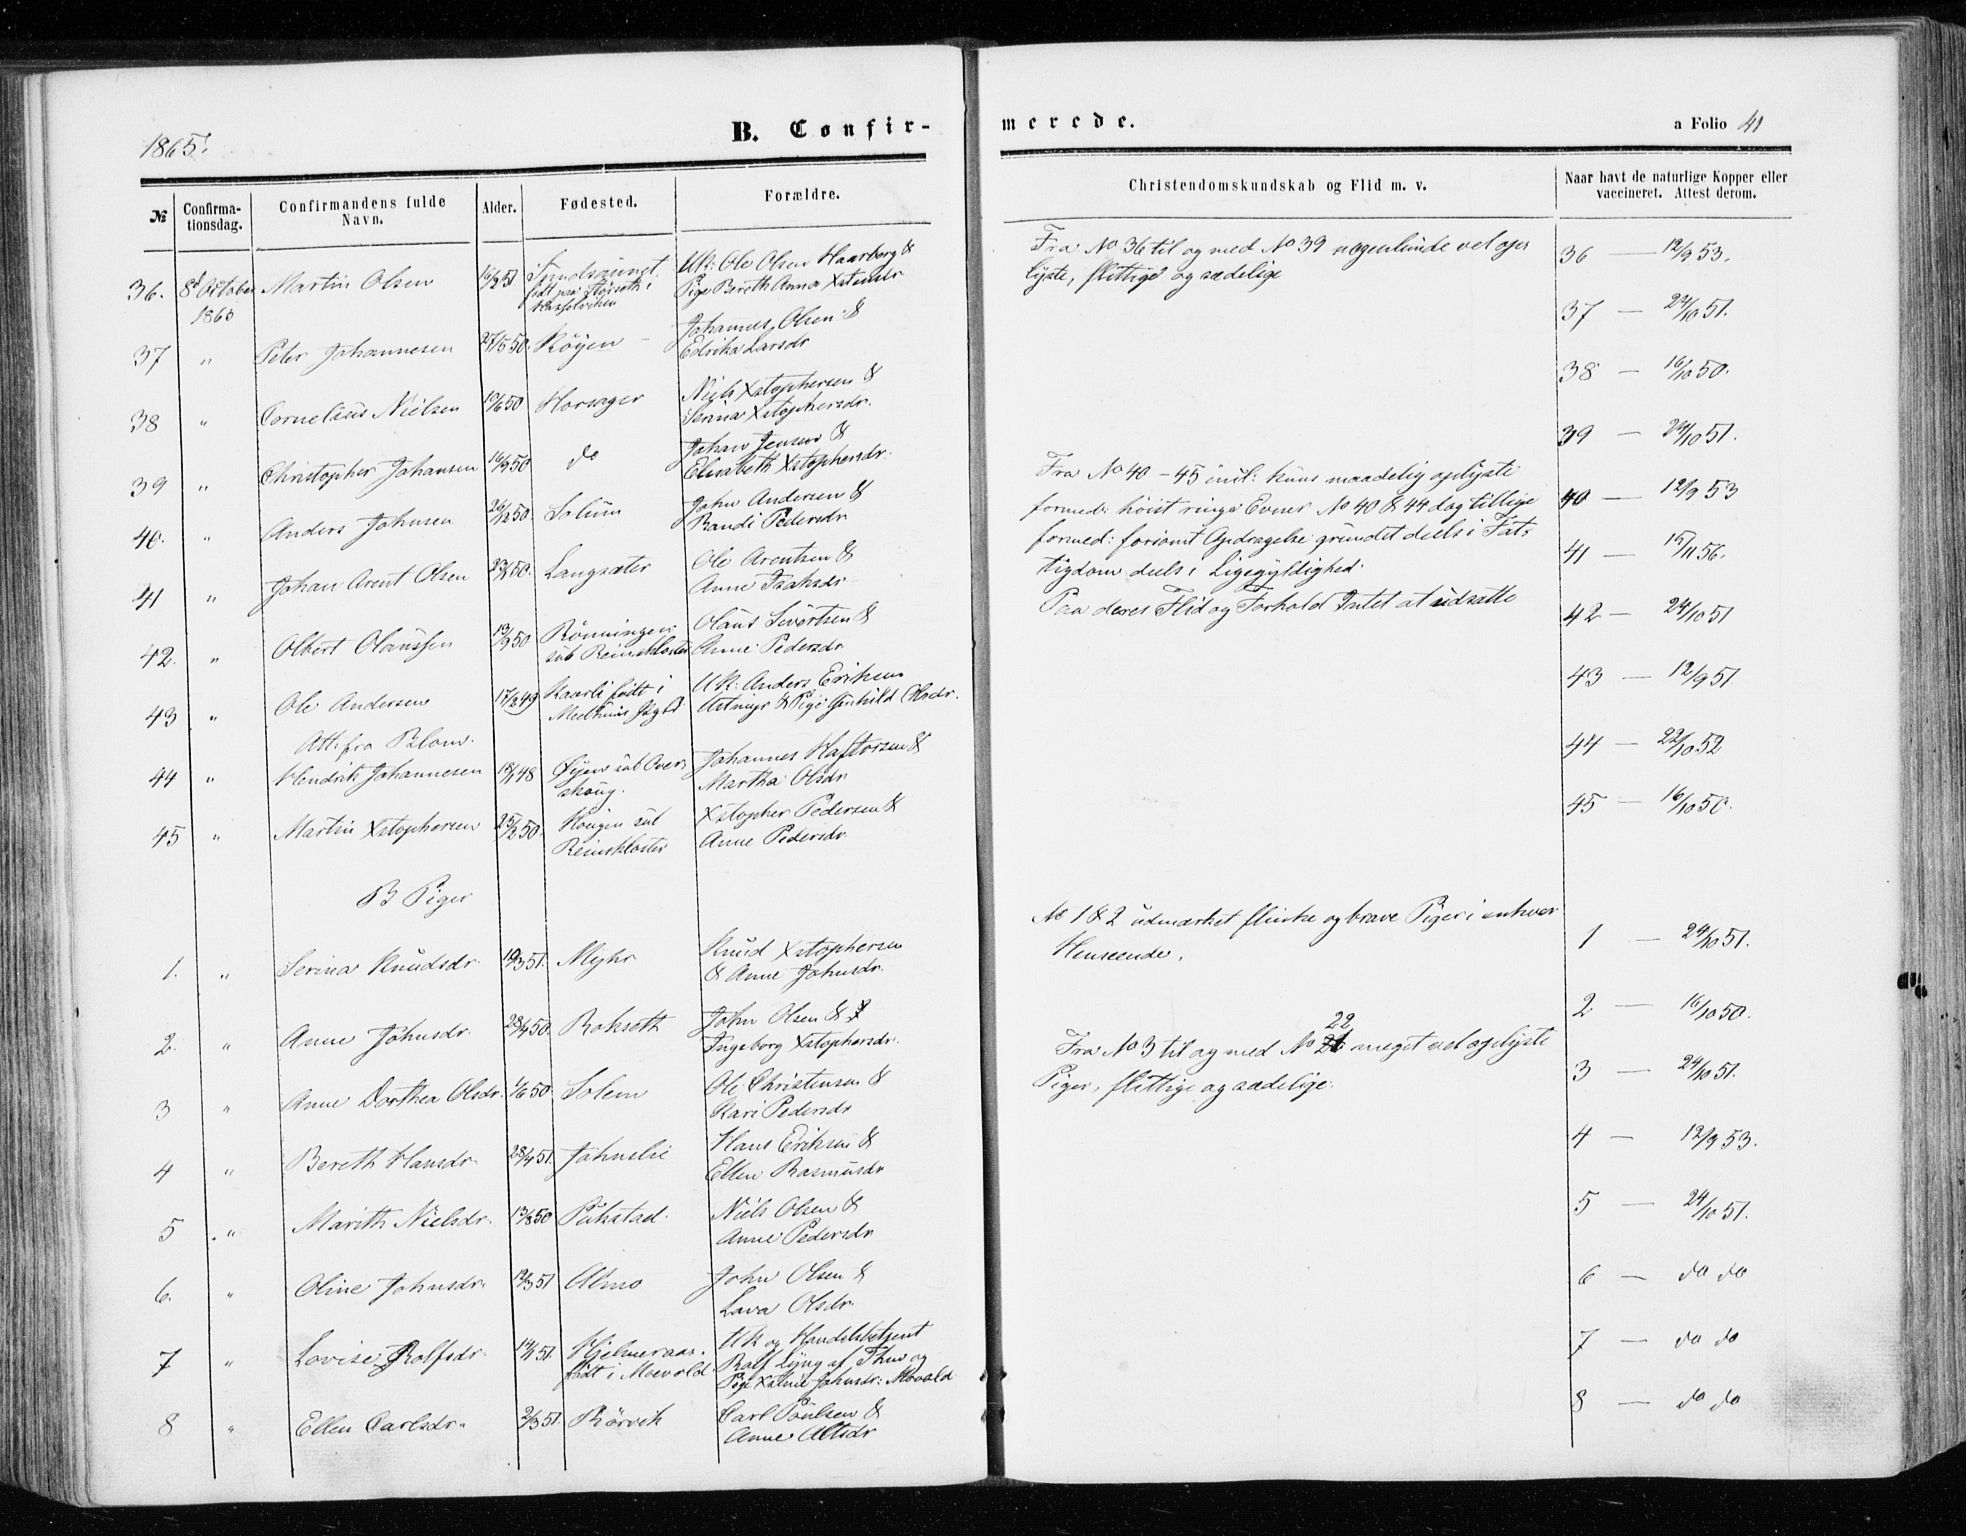 1865.
B. Confir-
merede.
a Folio 41
№
Confirma-
tionsdag.
Confirmandens fulde
Navn.
Alder.
Fødested.
Forældre.
Christendomskundskab og Flid m. v.
Naar havt de naturlige Kopper eller
vaccineret. Attest derom.
36. 8d October Martin Olsen
1865
født paa i
Uk: Ole Olsen Haarberg &
Pige Bereth Anna Xstensdr
37 " Peter Johannesen 27/5 50. Röyen
Johannes Olsen &
Edrika Larsdr
38 " Cornelius Nielsen 10/6 50 Horsager
Niels Xstophersen &
Serina Xstophersdr.
39 " Christopher Johansen 16/9 50 do
Johan Jensen &
Elisabeth Xstophersdr.
40. " Anders Johnsen 26/12 50. Solum
John Andersen &
Randi Pedersdr
41 " Johan Arent Olsen Langsæter
Ole Arentsen &
Anne Isaksdr
42. " Olbert Olaussen 13/9 50 Rönningen
sub Reinskloster
Olaus Sivertsen &
Anne Pedersdr
43 " Ole Andersen 17/2 49 Kaarli født i
Meelhuus Pgld
Uk: Anders Eriksen
& Pige Gunhild Olsdr.
Att. fra Blom.
44 " Hendrik Johannesen 18/1 48 Öyen sub Over
skoug.
Johannes Haftorsen &
Martha Olsdr
45 " Martin Xstophersen 25/2 50. Hougen sub
Reinskloster
Xstopher Pedersen &
Anne Pedersdr
B Piger
1. " Serina Knudsdr. 19/3 51. Myhr
Knud Xstophersen
& Anne Johnsdr.
2. " Anne Johnsdr. 28/4 50. Rokseth
John Olsen &
Ingeborg Xstophersdr.
3 " Anne Dorthea Olsdr. 1/6 50. Solem
Ole Christensen &
Kari Pedersdr
4 " Bereth Hansdr. 28/4 51. Johnslie
Hans Eriksen &
Ellen Rasmusdr
5 " Marith Nielsdr. 13/8 50 Pukstad
Niels Olsen &
Anne Pedersdr
6. " Oline Johnsdr. 12/3 51 Almo
John Olsen &
Lava Olsdr.
7 " Lovise Rolfsdr. 14/1 51 Hjelmeraas.
født i Moevold
Uk og Handelsbetjent
Rolf Lyng af Thm og
Pige Xstine Johnsdr: Movold
8 " Ellen Carlsdr. 2/3 51. Rörvik
Carl Poulsen &
Anne Altsdr
Fra No 36 til og med No 39 nogenlunde vel op
lyste, flittige og sædelige
Fra No 40 – 45 incl: kuns maadelig oplyste
formed: høist ringe Evner No 40 & 44 dog tillige
formed: forsömt Opdragelse grundet deels i Fat-
tigdom deels i Ligegyldighed.
Paa deres Flid og Forhold Intet at udsætte
No 1 & 2 udmærket flinke og brave Piger i enhver
Henseende.
22
Fra No 3 til og med No 21 meget vel oplyste
Piger, flittige og sædelige.
36 — 12/9 53.
37 — 24/10 51.
38 — 16/10 50.
39 — 24/10 51.
40 — 12/9 53
41 — 15/11 56.
42 — 24/10 51
43 — 12/9 51.
44 — 22/10 52
45 — 16/10 50.
1 — 24/10 51.
2 — 16/10 50.
3 — 24/10 51.
4 — 12/9 53.
5 — 24/10 51.
6 — do do
7 — do do
8 — do do